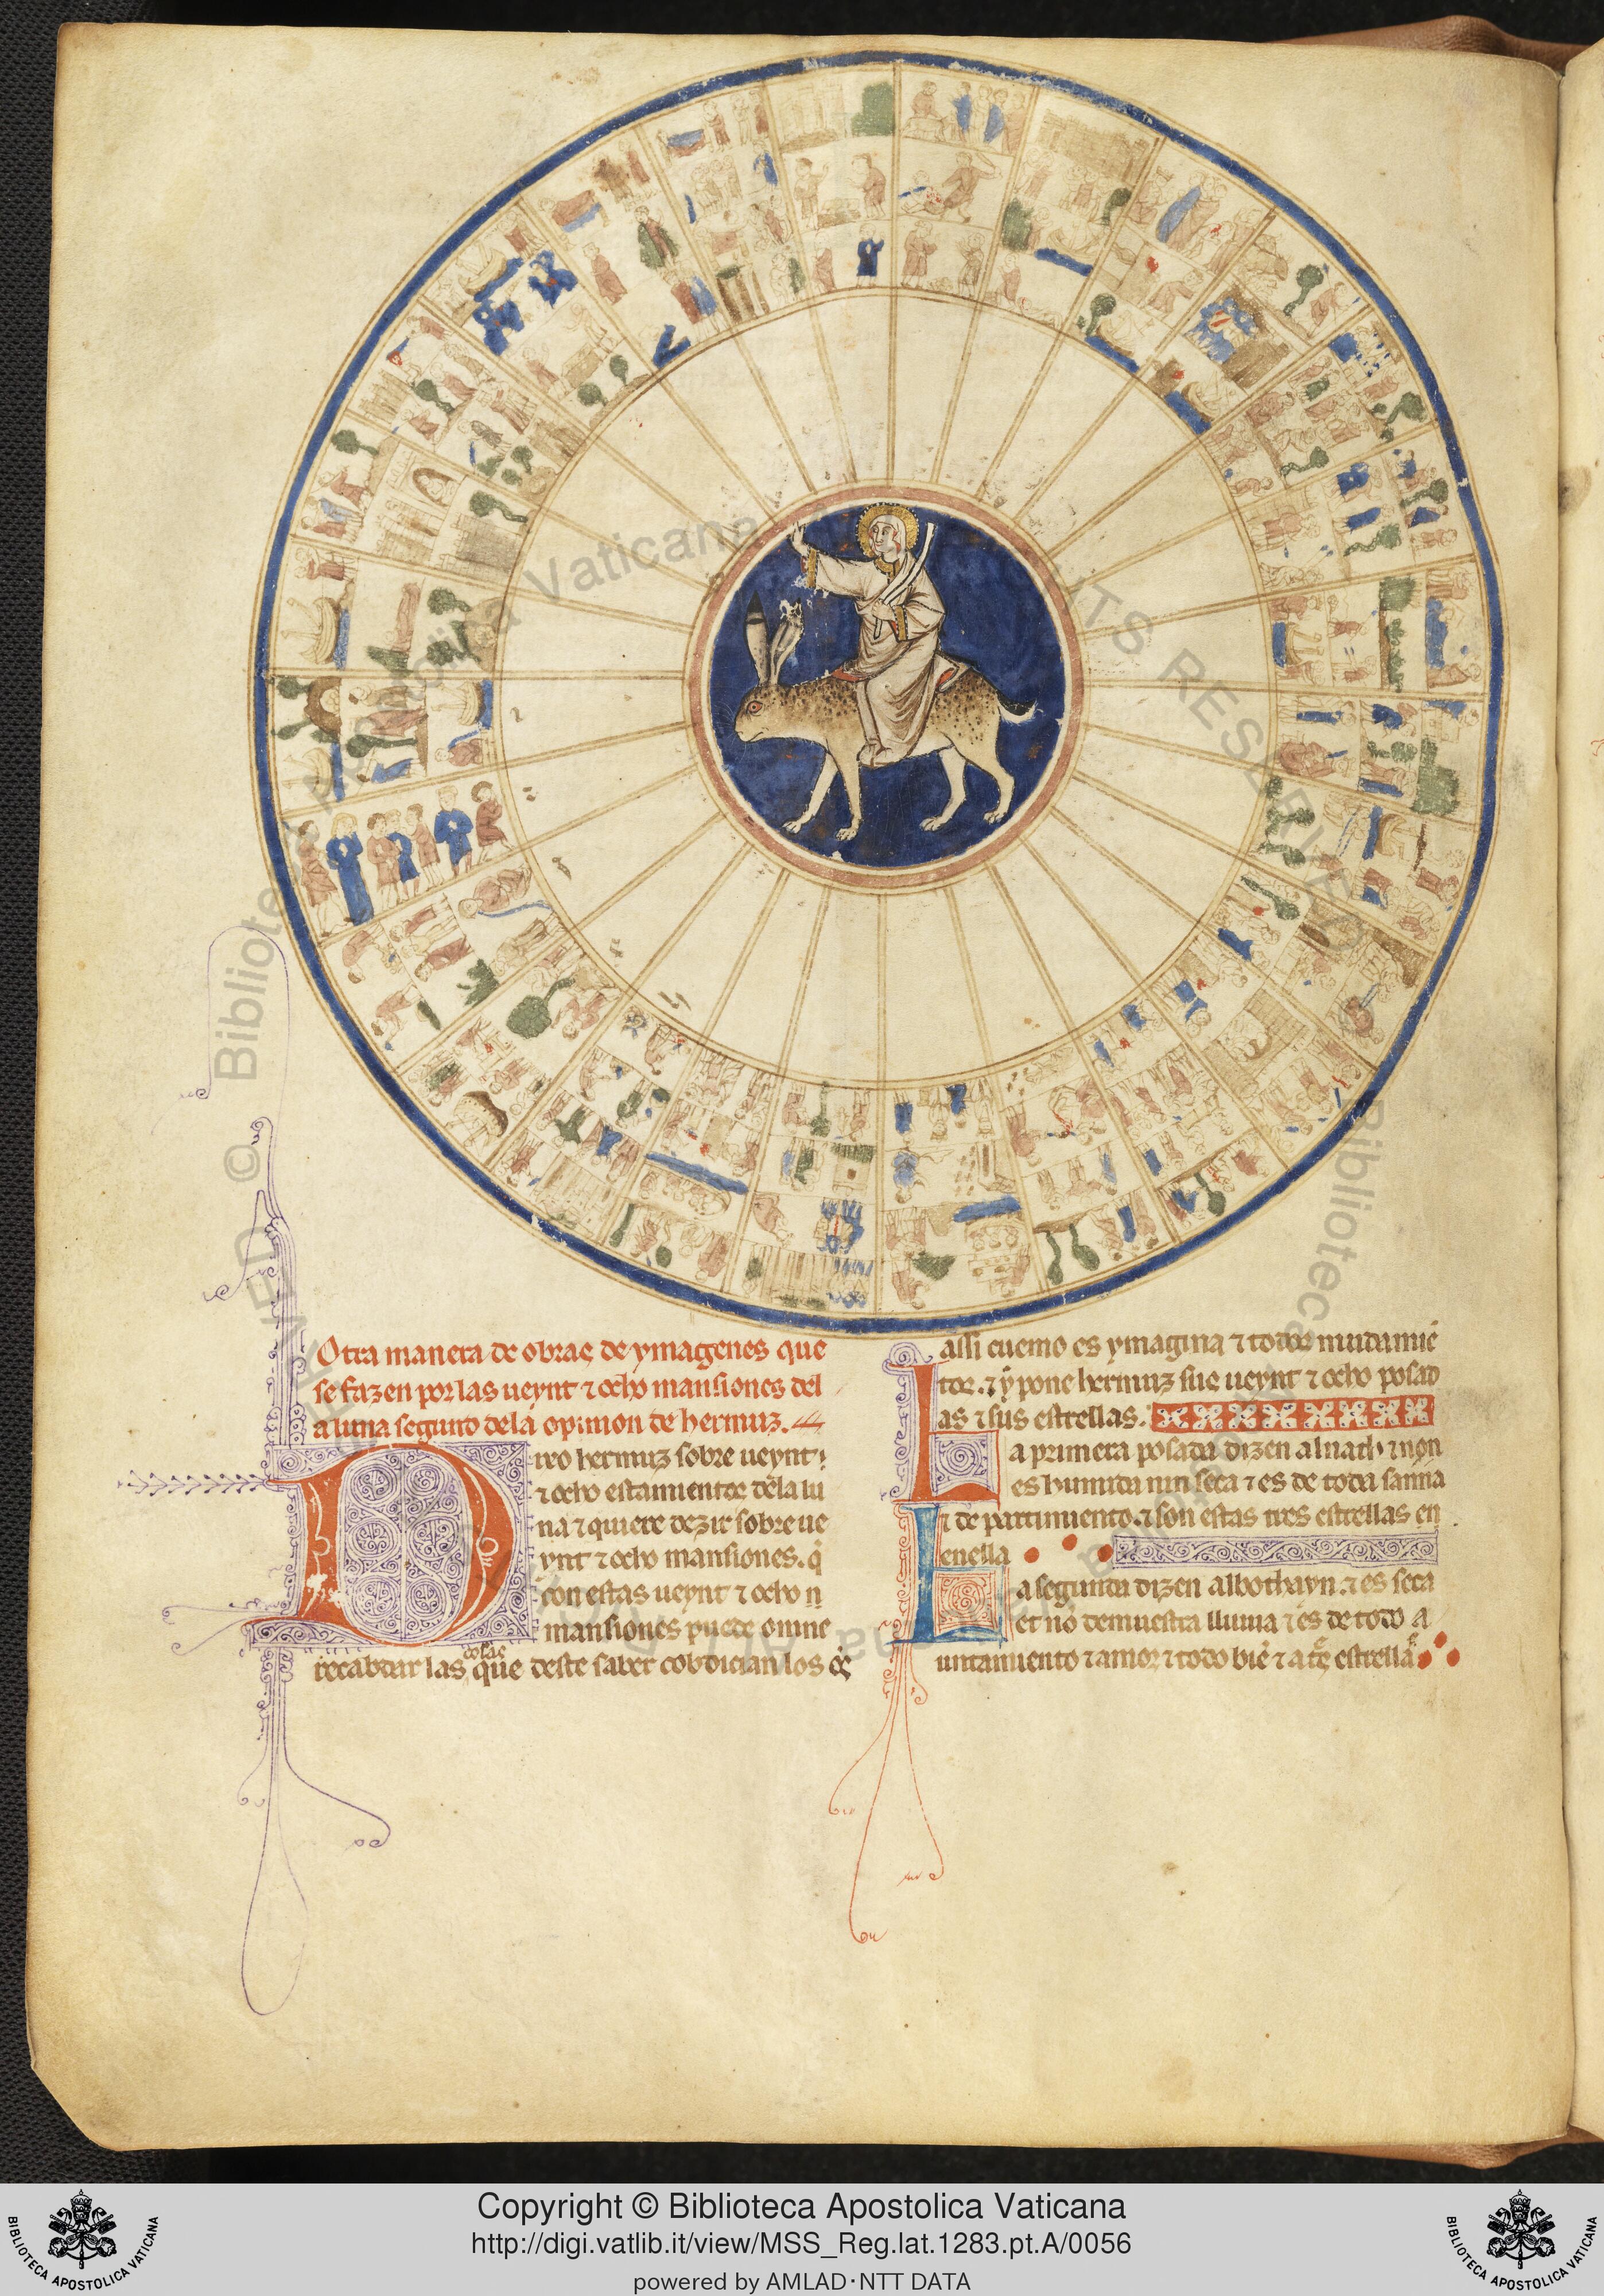 Otra manera de obras de ymagenes que
se fazen por las ueynt ⁊ ocho mansiones del
a luna segund dela opinion de hermuz.
Dixo hermuz sobre ueynt
⁊ ocho estamientos dela lu
na ⁊ quiere dezir sobre ue
ynt ⁊ ocho mansiones. q̃
con estas ueynt ⁊ ocho
mansiones puede omne
recabdar las cosas que deste saber cobdician los
assi cuemo es ymagina ⁊ todos mudamiẽ
tos. ⁊ y pone hermuz sus ueynt ⁊ ocho posad
as ⁊ sus estrellas.
La primera posada dizen alnath ⁊ non
es humida nin seca ⁊ es de toda sanna
⁊ de partimiento. ⁊ son estas tres estrellas en
enella
La segunda dizen albothayn. ⁊ es seca
et nõ demuestra lluuia ⁊ es de todo a
untamiento ⁊ amor ⁊ todo biẽ ⁊ estrellas
© Biblioteca Apostolica Vaticana
ALL RIGHTS RESERVED
Copyright © Biblioteca Apostolica Vaticana
http://digi.vatlib.it/view/MSS_Reg.lat.1283.pt.A/0056
powered by AMLAD·NTT DATA
BIBLIOTECA APOSTOLICA VATICANA
BIBLIOTECA APOSTOLICA VATICANA